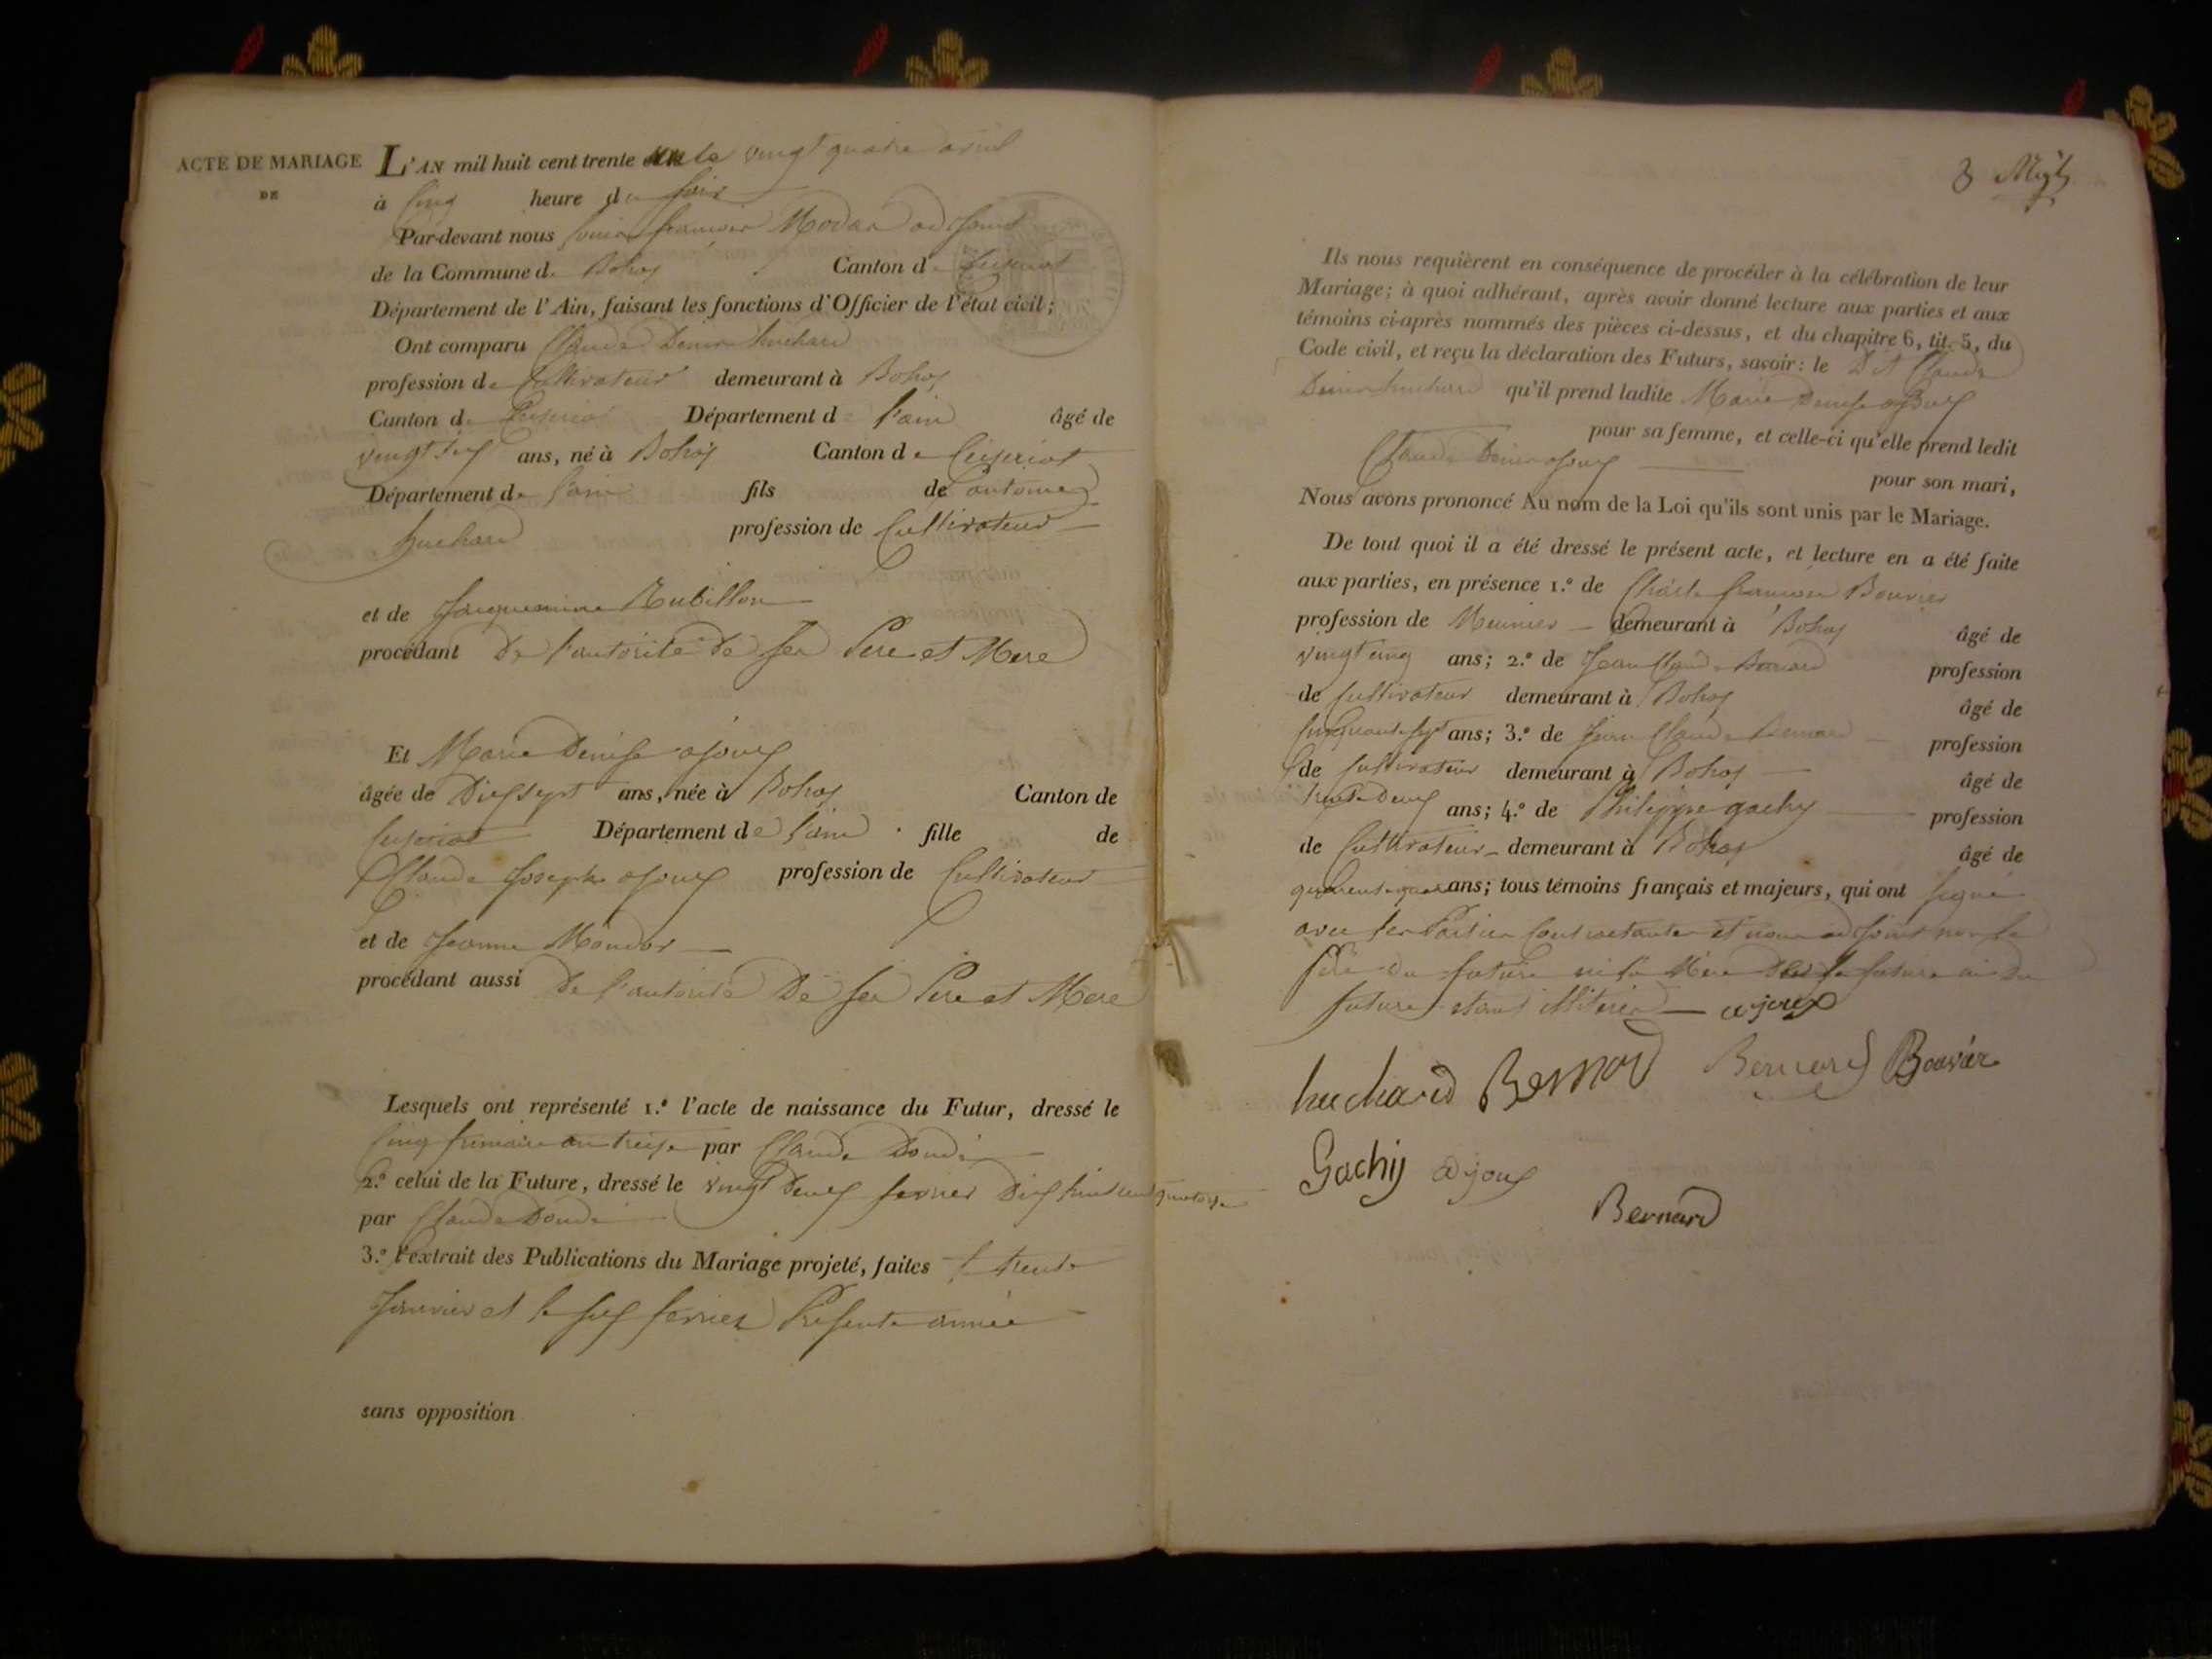 ACTE DE MARIAGE
DE
L'AN mil huit cent trente le vingt quatre avril
à cinq heure du soir
Par-devant nous françois adjoint
de la Commune de Bohas Canton de Ceyseriat
Département de l'Ain, faisant les fonctions d'Officier de l'état civil;
Ont comparu Claude Denis huchard
profession de Cultivateur demeurant à Bohas
Canton de Ceyseriat Département de l'ain âgé de
vingt six ans, né à Bohas Canton de Ceyseriat
Département de l'ain fils de antoine
huchard profession de Cultivateur
et de Jacquemine Rubillon
procédant De l'autorité De ses Pere et Mere
Et Marie Denise ajoux
âgée de Dix sept ans, née à Bohas Canton de
Ceyseriat Département de l'ain fille de
Claude Joseph ajoux profession de Cultivateur
et de Jeanne
procédant aussi De l'autorité De ses Pere et Mere
Lesquels ont représenté 1.º l'acte de naissance du Futur, dressé le
cinq frimaire an treize par Claude
2.º celui de la Future, dressé le vingt Deux fevrier Dix huit cent quatorze
par Claude
3.º l'extrait des Publications du Mariage projeté, faites le trente
Janvier et le six fevrier Presente année
sans opposition
3
Ils nous requièrent en conséquence de procéder à la célébration de leur
Mariage; à quoi adhérant, après avoir donné lecture aux parties et aux
témoins ci-après nommés des pièces ci-dessus, et du chapitre 6, tit. 5, du
Code civil, et reçu la déclaration des Futurs, savoir: le Dit Claude
Denis huchard qu'il prend ladite Marie Denise
pour sa femme, et celle-ci qu'elle prend ledit
Claude Denis ajoux
pour son mari,
Nous avons prononcé Au nom de la Loi qu'ils sont unis par le Mariage.
De tout quoi il a été dressé le présent acte, et lecture en a été faite
aux parties, en présence 1.º de françois Bouvier
profession de Meunier demeurant à Bohas âgé de
vingt cinq ans; 2.º de Jean Claude Bernard profession
de Cultivateur demeurant à Bohas âgé de
Cinquante sept ans; 3.º de Jean Claude Bernard profession
de Cultivateur demeurant à Bohas âgé de
trente Deux ans; 4.º de Philippe gachy profession
de Cultivateur demeurant à Bohas âgé de
quarente ans; tous témoins français et majeurs, qui ont signé
avec les Parties Contractantes et nous adjoint non le
père du future ni la Mère De la future ni du
future etant illiteré ajoux
huchard Bernard Bernard Bouvier
Gachy ajoux
Bernard